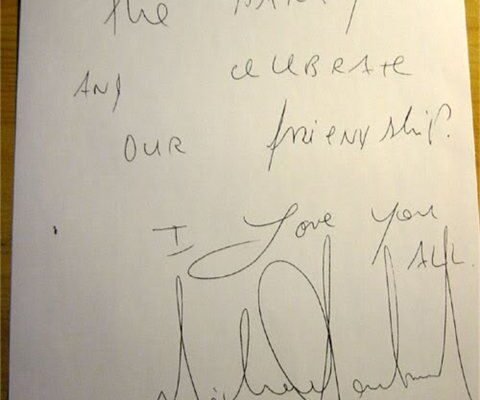 the PARTY
AND CELEBRATE
OUR friendship.
I Love You
ALL.